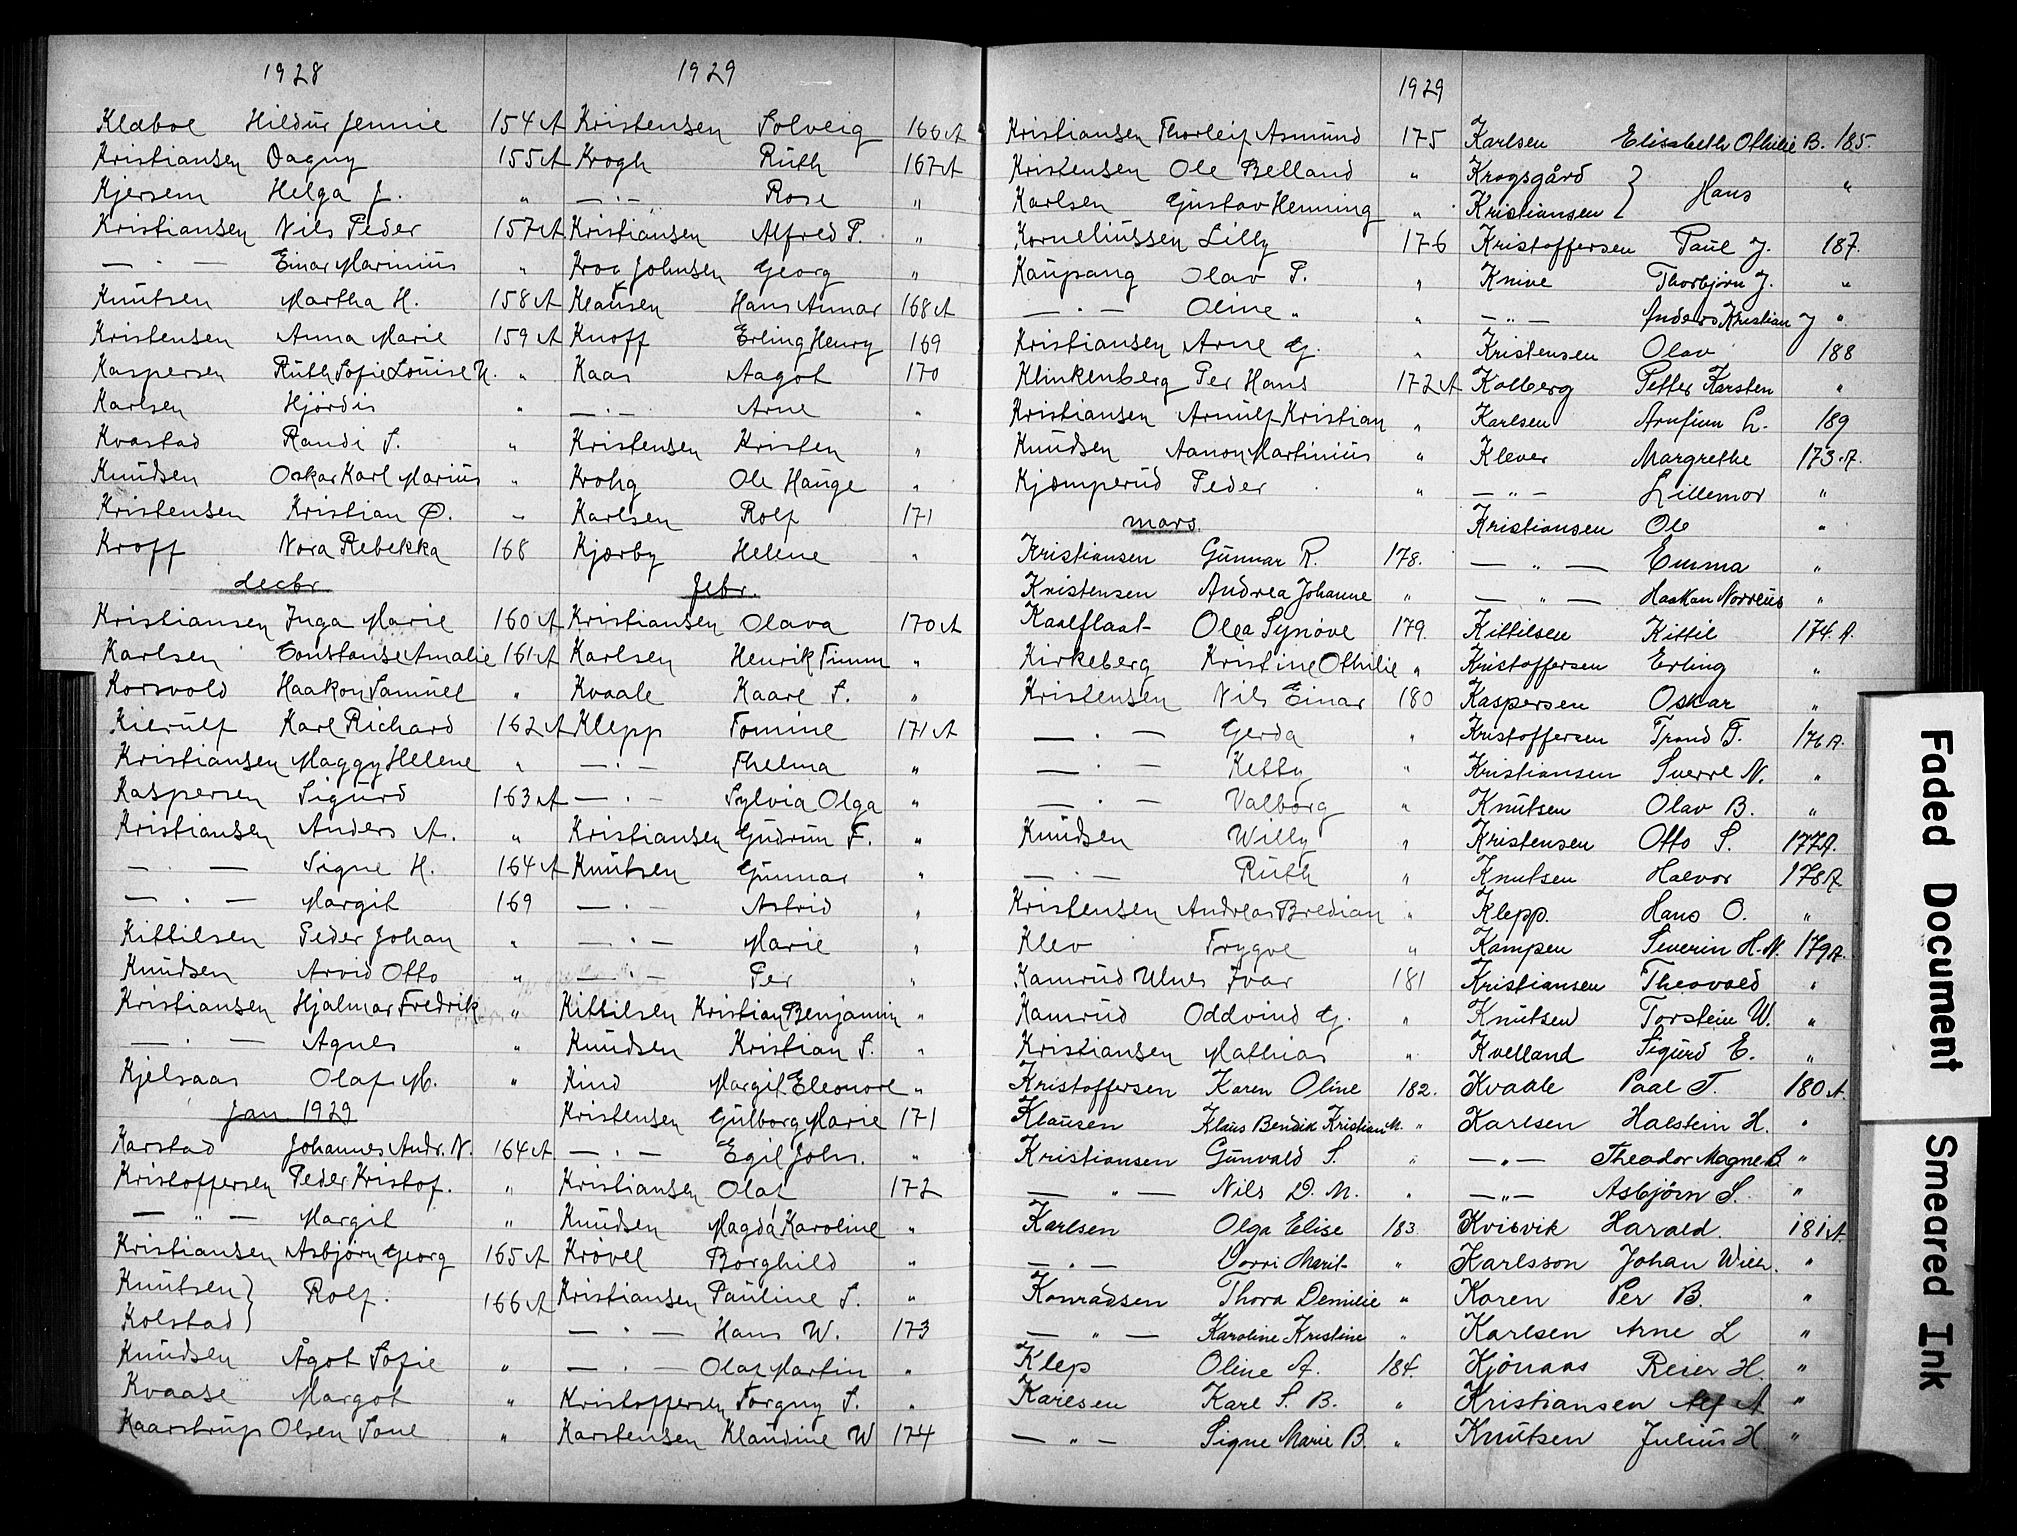 1928
Klaboe Hildur Jennie 154 A
Kristiansen Dagny 155 A
Kjersem Helga J. "
Kristiansen Nils Peder 157 A
— . — Einar Marinius "
Knutsen Martha H. 158 A
Kristensen Anna Marie 159 A
Kaspersen Ruth Sofie Louise N. "
Karlsen Hjördis "
Kvastad Randi S. "
Knudsen Oskar Karl Marius "
Kristensen Kristian Ø. "
Kroff Nora Rebekka 168
decbr
Kristiansen Inga Marie 160 A
Karlsen Constanse Amalie 161 A
Korsvold Haakon Samuel "
Kierulf Karl Richard 162 A
Kristiansen Maggy Helene "
Kaspersen Sigurd 163 A
Kristiansen Anders A. "
— . — Signe H. 164 A
— . — Margit 169
Kittilsen Peder Johan "
Knudsen Arvid Otto "
Kristiansen Hjalmar Fredrik "
— . — Agnes "
Kjelsaas Olaf M. "
Jan 1929
Karstad Johannes Andr. N. 164 A
Kristoffersen Peder Kristof. "
— " — Margit "
Kristiansen Asbjörn Georg 165 A
Knutsen } Rolf. 166 A
Kolstad }
Knudsen Ågot Sofie "
Kvaase Margot "
Kaarstrup Olsen Tone "
1929
Kristensen Solveig 166 A
Krogh Ruth 167 A
— . — Rose "
Kristiansen Alfred P. "
Krog Johnsen Georg "
Klausen Hans Annar 168 A
Knoff Erling Henry 169
Kaas Aagot 170
— . — Arne "
Kristensen Kristen "
Krohg Ole Hauge "
Karlsen Rolf 171
Kjærby Helene "
febr.
Kristiansen Olava 170 A
Karlsen Henrik Finnm "
Kvaale Kaare S. "
Klepp Tomine 171 A
— . — Thelma "
— . — Sylvia Olga "
Kristiansen Gudrun F. "
Knutsen Gunnar "
— . — Astrid "
— . — Marie "
— . — Per "
Kittilsen Kristian Benjamin "
Knudsen Kristian S. "
Kind Margit Eleonore "
Kristensen Gulborg Marie 171
— . — Egil Johs. "
Kristiansen Olaf 172
Knudsen Magda Karoline "
Krövel Borghild "
Kristiansen Pauline S. "
— . — Hans W. 173
— . — Olaf Martin "
Kristoffersen Torguny S. "
Karstensen Klaudine W 174
1929
Kristiansen Thorleif Asmund 175
Kristensen Ole Belland "
Karlsen Gustav Henning "
Korneliussen Lilly 176
Kaupang Olav P. "
— . — Oline " "
Kristiansen Arne G. "
Klinkenberg Per Hans 172 A
Kristiansen Arnulf Kristian "
Knudsen Aanon Martinius "
Kjæmperud Peder "
mars.
Kristiansen Gunnar R. 178.
Kristensen Andrea Johanne "
Kaalflaat Olga Synöve 179.
Kirkeberg Kristine Othilie "
Kristensen Nils Einar 180
— . — Gerda "
— . — Ketty "
— . — Valborg "
Knudsen Willy "
— . — Ruth "
Kristensen Andreas Bredian "
Klev Trygve "
Kamrud Ulnes Ivar 181
Kamrud Oddvind G. "
Kristiansen Mathias "
Kristoffersen Karen Oline 182.
Klausen Klaus Bendik Kristian M. "
Kristiansen Gunvald S. "
— " — Nils D. M. "
Karlsen Olga Elise 183.
— . — Dorri Marit "
Konradsen Thora Demilie "
— " — Karoline Kristine "
Klep Oline A. 184.
Karlsen Karl S. B. "
— " — Signe Marie B. "
Karlsen Elisabeth Othilie B. 185.
Krogsgård } Hans "
Kristiansen }
Kristoffersen Paul J. 187.
Knive Thorbjörn J. "
— " — Anders Kristian J "
Kristensen Olav 188
Kolberg Petter Karsten "
Karlsen Arnfinn L. 189
Klever Margrethe 173 A.
— " — Lillemor "
Kristiansen Ole "
— " — Emma "
— " — Haakon Norréus "
Kittilsen Kittil 174 A.
Kristoffersen Erling "
Kaspersen Oskar "
Kristoffersen Trond F. 176 A.
Kristiansen Sverre N. "
Knutsen Olav B. "
Kristensen Otto S. 177 A.
Knutsen Halvor 178 A
Klepp. Hans O. "
Kampen Severin H. N. 179 A.
Kristiansen Theovald "
Knutsen Torstein W. "
Kvelland Sigurd E. "
Kvaale Paal T. 180 A.
Karlsen Halstein H. "
— " — Theodor Magne B. "
— " — Asbjörn S. "
Kvisvik Harald. 181 A.
Karlsson Johan Wilh. "
Koren Per B. "
Karlsen Arne L "
Kjönaas Reier H. "
Kristiansen Alf A "
Knutsen Julius H. "
Faded Document
Smeared Ink